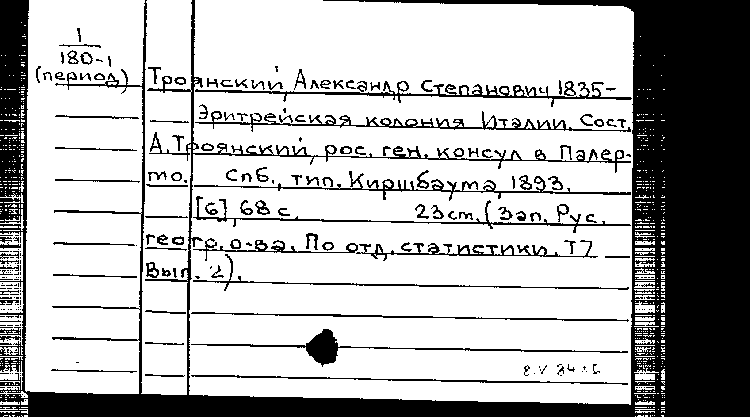 1
180-1
(период)
Троянский, Александр Степанович, 1835-
Эритрейская колония Италии. Сост.
А. Троянский, рос. ген. консул в Палер-
мо. Спб., тип. Киршбаума, 1893.
[6], 68 с. 23 см. (Зап. Рус.
геогр. о-ва. По отд. статистики. Т7
Вып. 2).
8.V 84